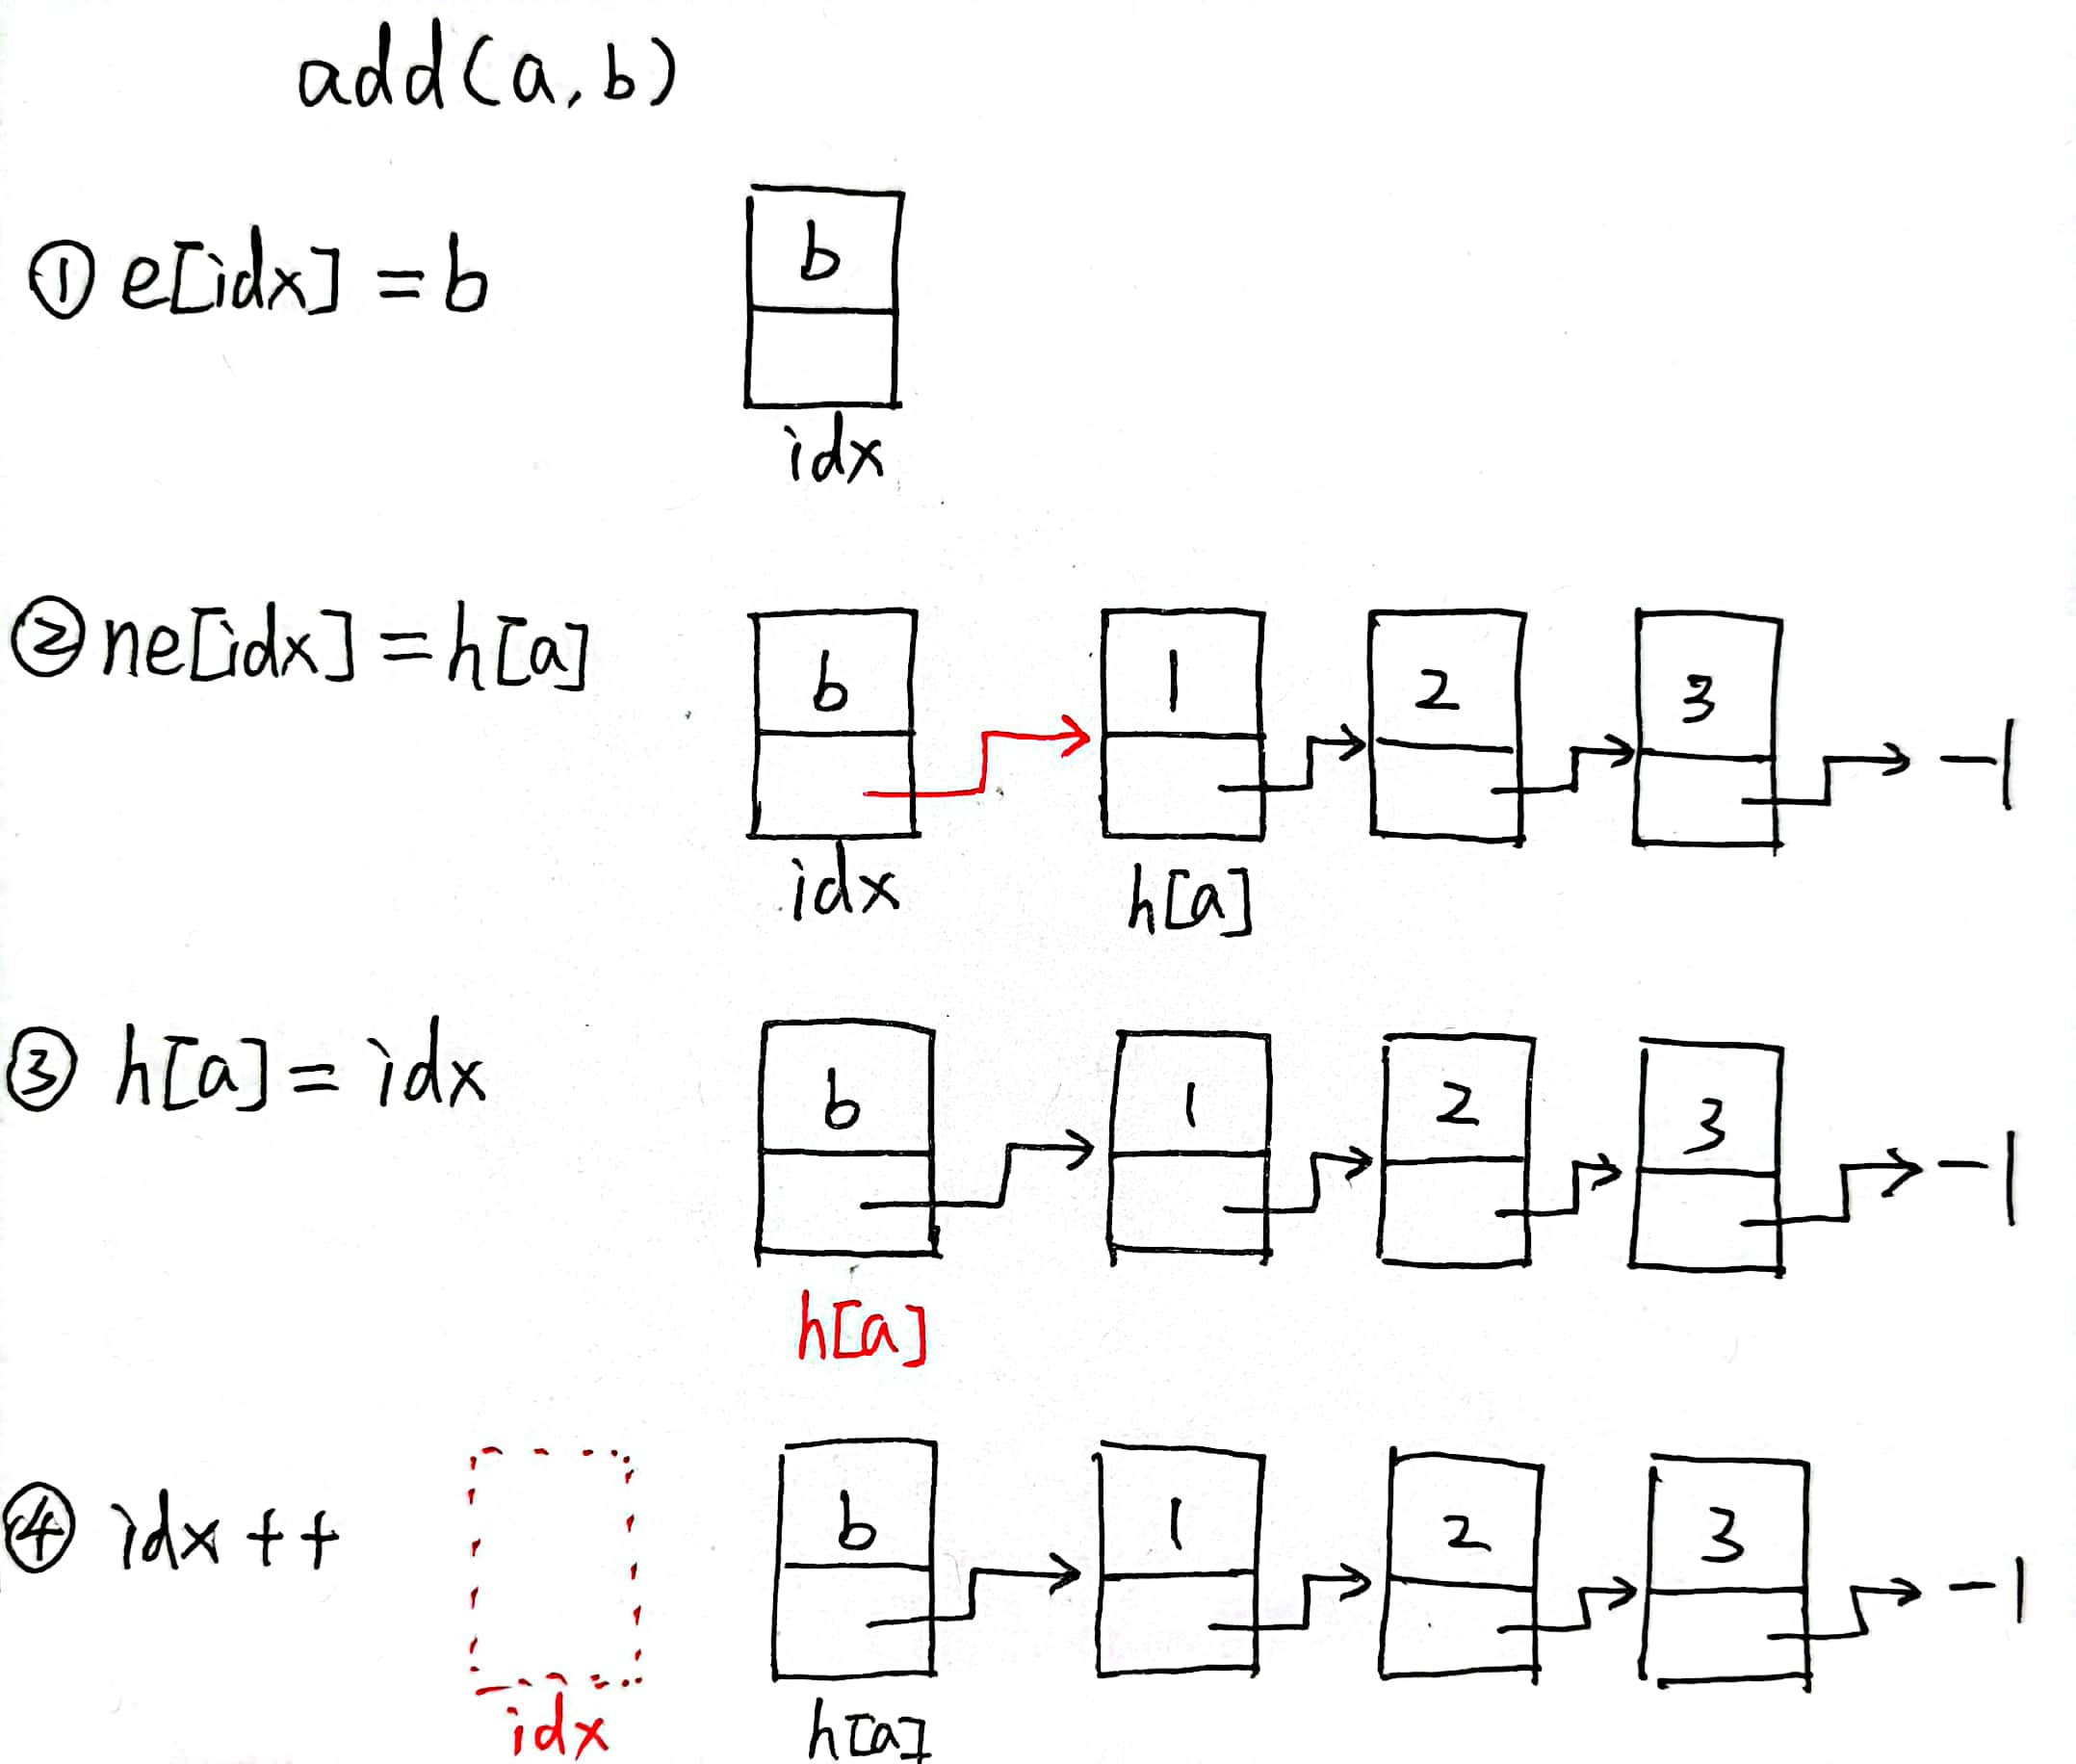 add(a,b)
① e[idx] = b
b
idx
② ne[idx] = h[a]
b 1 2 3 -1
idx h[a]
③ h[a] = idx
b 1 2 3 -1
h[a]
④ idx++
b 1 2 3 -1
idx h[a]